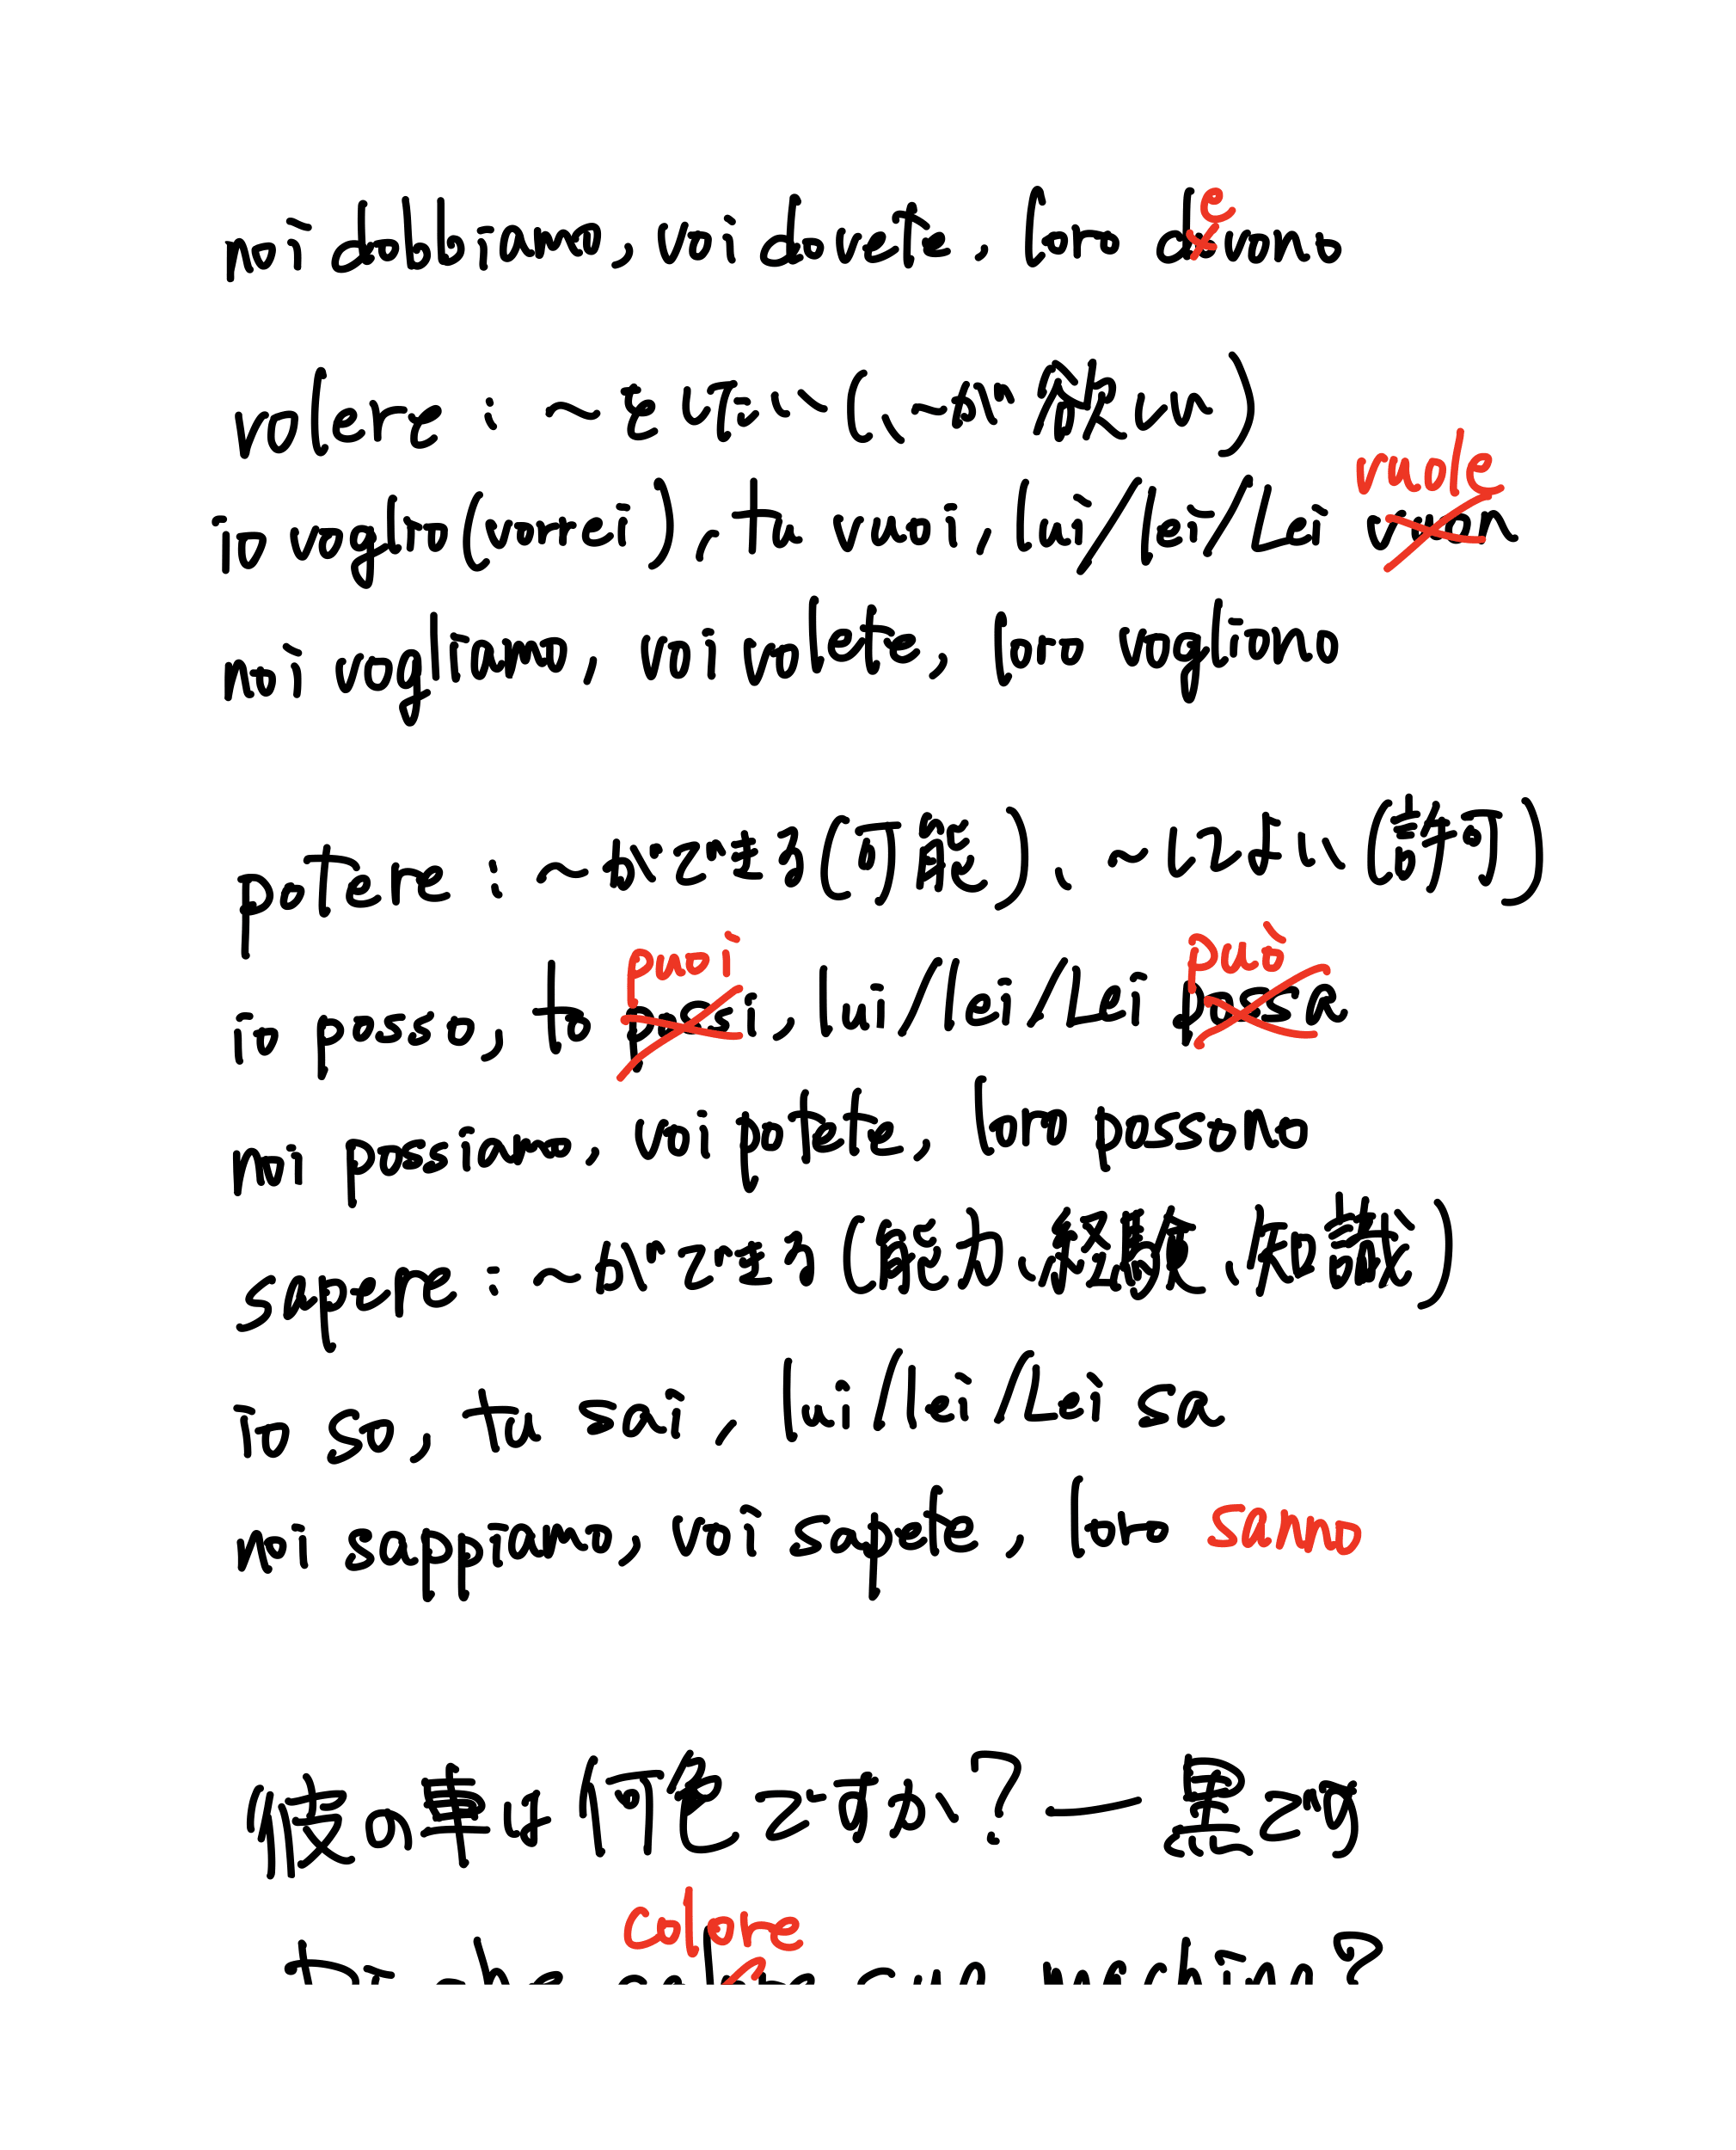 noi dobbiamo, voi dovete, loro devono
volere : 〜を欲しい(、〜が欲しい)
vuole
io voglio(vorrei), tu vuoi, lui/lei/Lei
noi vogliamo, voi volete, loro vogliono
potere : 〜ができる(可能)、〜してよい(許可)
puoi può
io posso, to possi, lui/lei/Lei possa
noi possiamo, voi potete, loro possono
sapere : 〜ができる(能力、経験、知識)
io so, tu sai, lui/lei/Lei sa
noi sappiamo, voi sapete, loro sanno
彼の車は何色ですか?ー黒です
colore